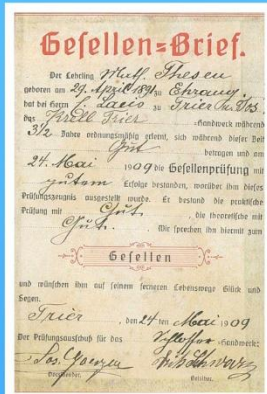 Gesellen=Brief.
Der Lehrling Math. Thesen
geboren am 29. April 1891 zu Ehrang,
hat bei Herrn zu Trier
das Handwerk während
3 1/2 Jahre ordnungsmäßig erlernt, sich während dieser Zeit
Gut betragen und am
24. Mai 1909 die Gesellenprüfung mit
gutem Erfolge bestanden, worüber ihm dieses
Prüfungszeugnis ausgestellt wurde. Er bestand die praktische
Prüfung mit Gut, die theoretische mit
Gut. Wir sprechen ihn hiermit zum
Gesellen
und wünschen ihm auf seinem ferneren Lebenswege Glück und
Segen.
Trier, den 24ten Mai 1909
Der Prüfungsausschuß für das Schlosser-Handwerk:
Jos.